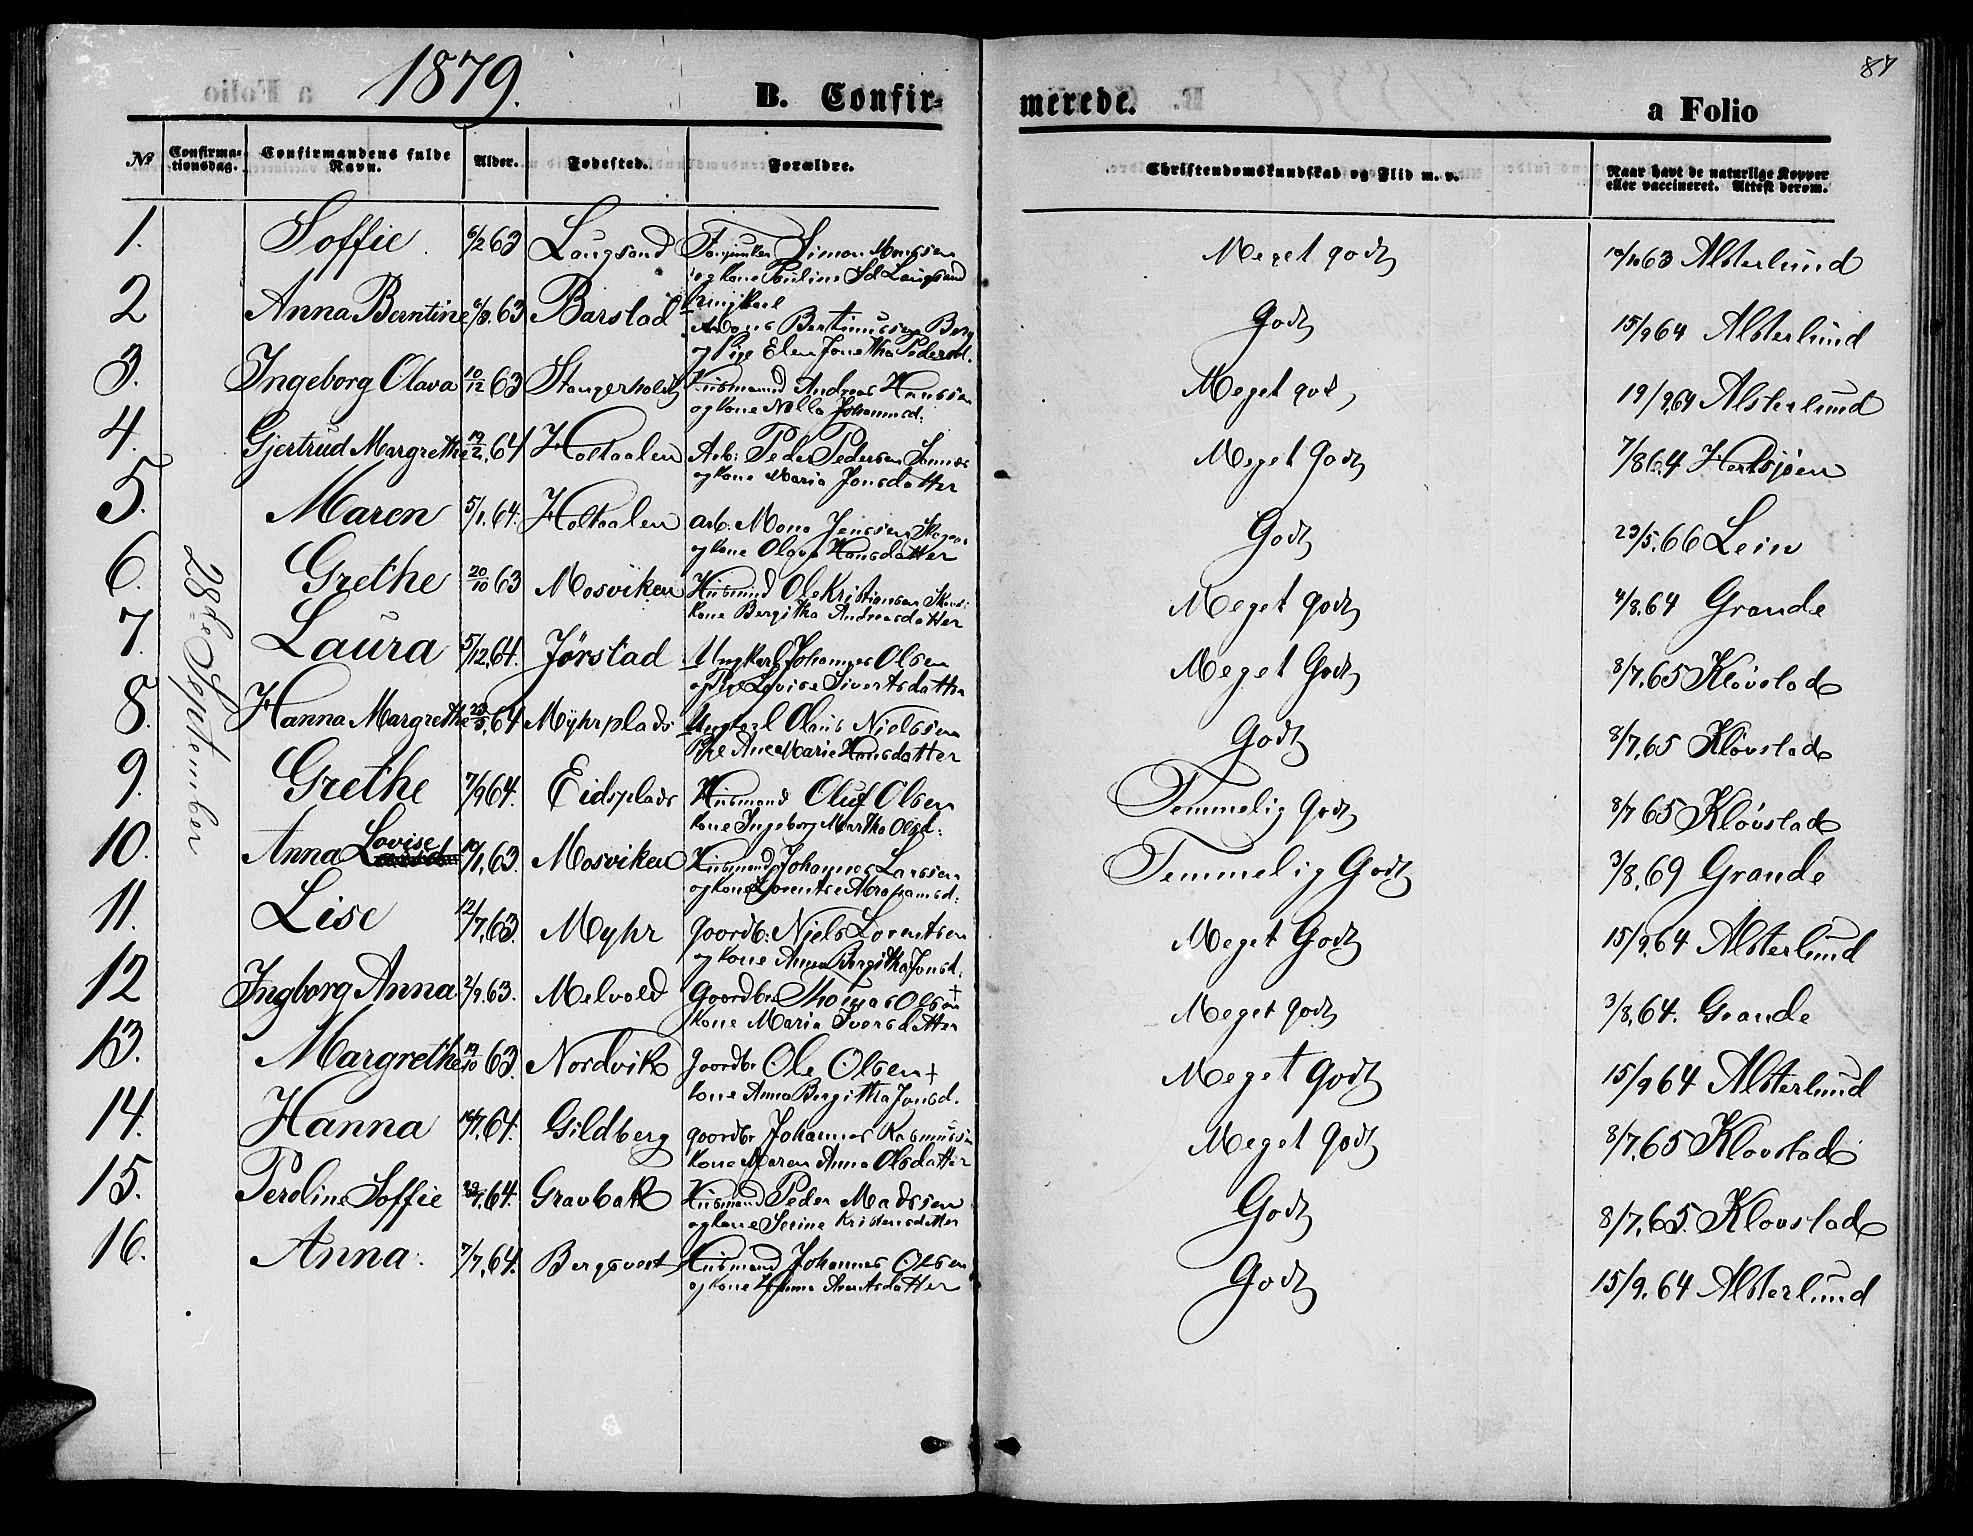 1879.
B. Confir-
merede.
a Folio
87
No
Confirma-
tionsdag.
Confirmandens fulde
Navn.
Alder.
Fødested.
Forældre.
Christendomskundskab og Flid m. v.
Naar havt de naturlige Kopper
eller vaccineret. Attest derom.
28de September
1. Soffie 6/2 63 Langsand Simon
og kone Pauline Meget godt 63 Alsterlund
2 Anna Berntine 63 Barstad Ungkarl
Berg
og Pige Elen Jonetha Pedersd. Godt 15/9 64 Alsterlund
3. Ingeborg Olava 10/12 63 Husmand Andreas Hansen
og kone Johannesd. Meget god 19/9 64 Alsterlund
4. Gjertrud Margrethe 64 Holtaalen Arb: Peder Pedersen
og kone Maria Jonsdatter Meget Godt 7/8 64
5. Maren 5/1. 64. Holtaalen Arb. Mons Jenssen
og kone Olava Hansdatter Godt 23/5. 66 Lein
6. Grethe 20/10 63 Mosviken Husmand Ole Kristiansen
kone Bergitha Andreasdatter Meget godt 4/8. 64 Grande
7. Laura 5/12. 64. Jørstad Ungkarl Johannes Olsen
og Pige Lovise Sivertsdatter Meget Godt 8/7. 65 Klövstad
8. Hanna Margrethe 64 Myhrplads Ungkarl Olaus Nielssen
Pige Ane Marie Hansdatter Godt 8/7. 65 Klövstad
9. Grethe 7/9 64. Eidsplads Husmand Oluf Olsen
kone Ingeborg Martha Olsd: Temmelig godt 8/7 65 Klövstad
10. Anna Lovise 63 Mosviken Husmand Johannes Larssen
og kone Lorentse Abrahamsd: Temmelig Godt 3/8. 69 Grande
11. Lise 12/7. 63. Myhr Gaardb: Niels Lorentsen
og kone Anna Bergitha Jonsd. Meget Godt 15/9. 64 Alsterlund
12 Ingborg Anna 2/9. 63. Melvold Gaardbr Thomas Olsen †
kone Maria Iversdatter Meget godt 3/8. 64. Grande
13. Margrethe 63. Nordvik Gaardbr Ole Olsen †
kone Anna Bergitha Jonsd. Meget Godt 15/9 64 Alsterlund
14. Hanna 64. Gildberg gaardbr Johannes Rasmussen
kone Maren Anna Olsdatter Meget godt 8/7. 65 Klovstad
15. Peroline Soffie 64. Gravbak Husmand Peder Madssen
og kone Serine Kristensdatter Godt 8/7. 65. Klovstad
16. Anna. 7/7. 64. Husmand Johannes Olsen
og kone Godt 15/9. 64 Alsterlund